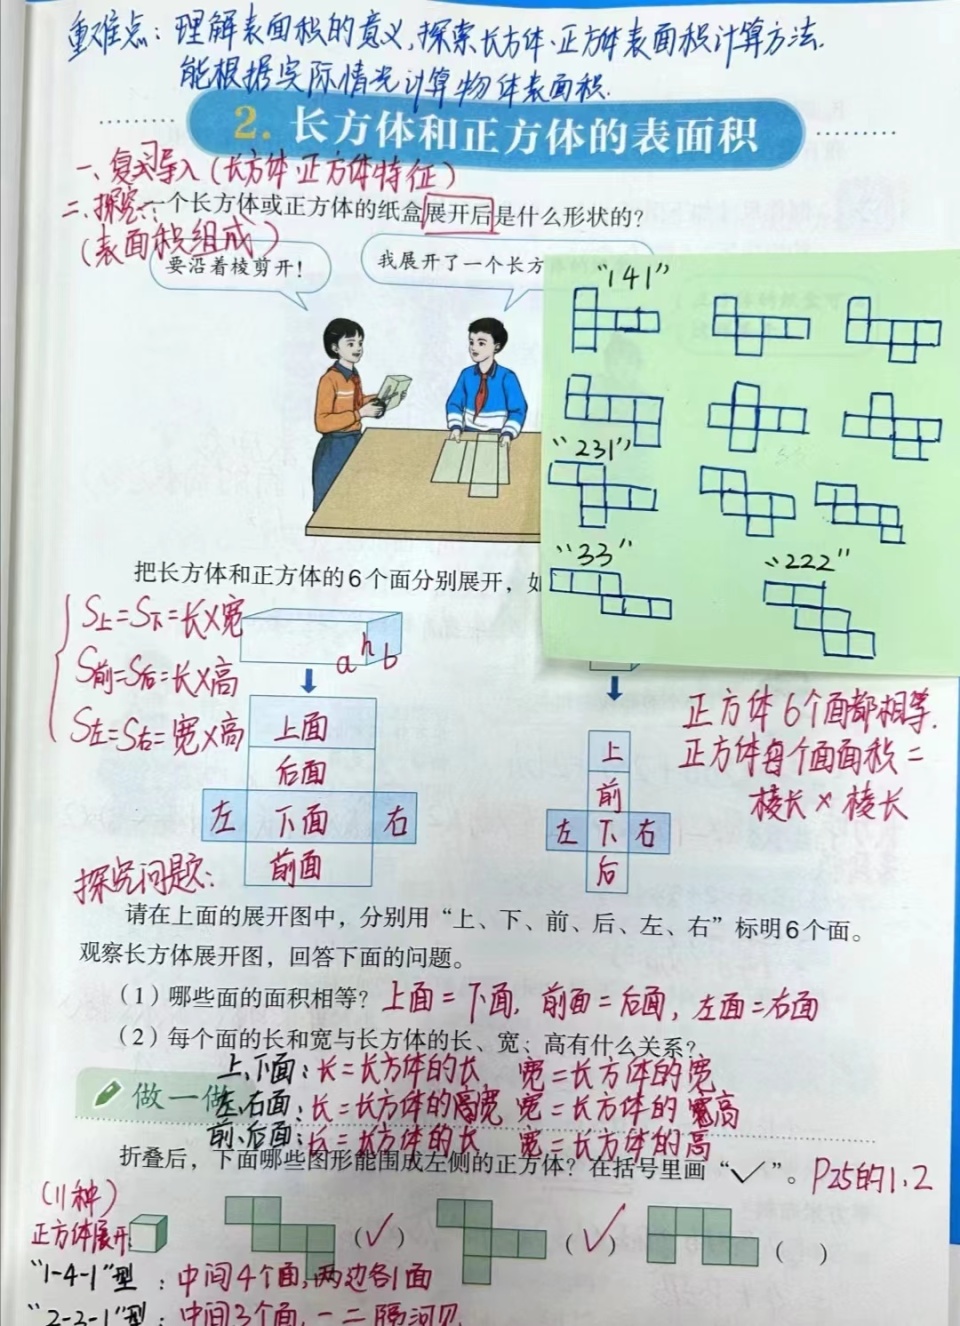 重难点：理解表面积的意义,探索长方体、正方体表面积计算方法.
能根据实际情况计算物体表面积.
2. 长方体和正方体的表面积
一、复习导入(长方体、正方体特征)
二、探究：一个长方体或正方体的纸盒展开后是什么形状的？
(表面积组成)
要沿着棱剪开！
我展开了一个长方
“141”
“231”
“33”
“222”
把长方体和正方体的6个面分别展开，如
S上=S下=长×宽
S前=S后=长×高
S左=S右=宽×高
a h b
上面
后面
左 下面 右
前面
上
前
左 下 右
后
正方体6个面都相等.
正方体每个面面积=
棱长×棱长
探究问题：
请在上面的展开图中，分别用“上、下、前、后、左、右”标明6个面。
观察长方体展开图，回答下面的问题。
（1）哪些面的面积相等？ 上面=下面, 前面=后面, 左面=右面
（2）每个面的长和宽与长方体的长、宽、高有什么关系？
上、下面：长=长方体的长 宽=长方体的宽
做一做
左、右面：长=长方体的宽 宽=长方体的高
前、后面：长=长方体的长 宽=长方体的高
折叠后，下面哪些图形能围成左侧的正方体？在括号里画“✓”。 P25的1、2
(11种)
正方体展开
（✓） （✓） （ ）
“1-4-1”型：中间4个面,两边各1面
“2-3-1”型：中间3个面,一二隔河见